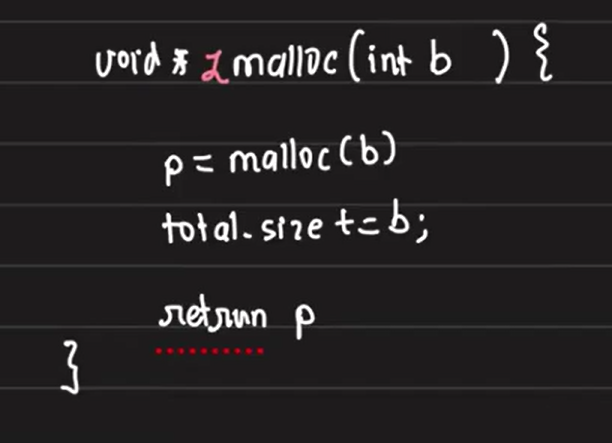 void * zmalloc(int b ) {
p = malloc(b)
total_size += b;
retrun p
}